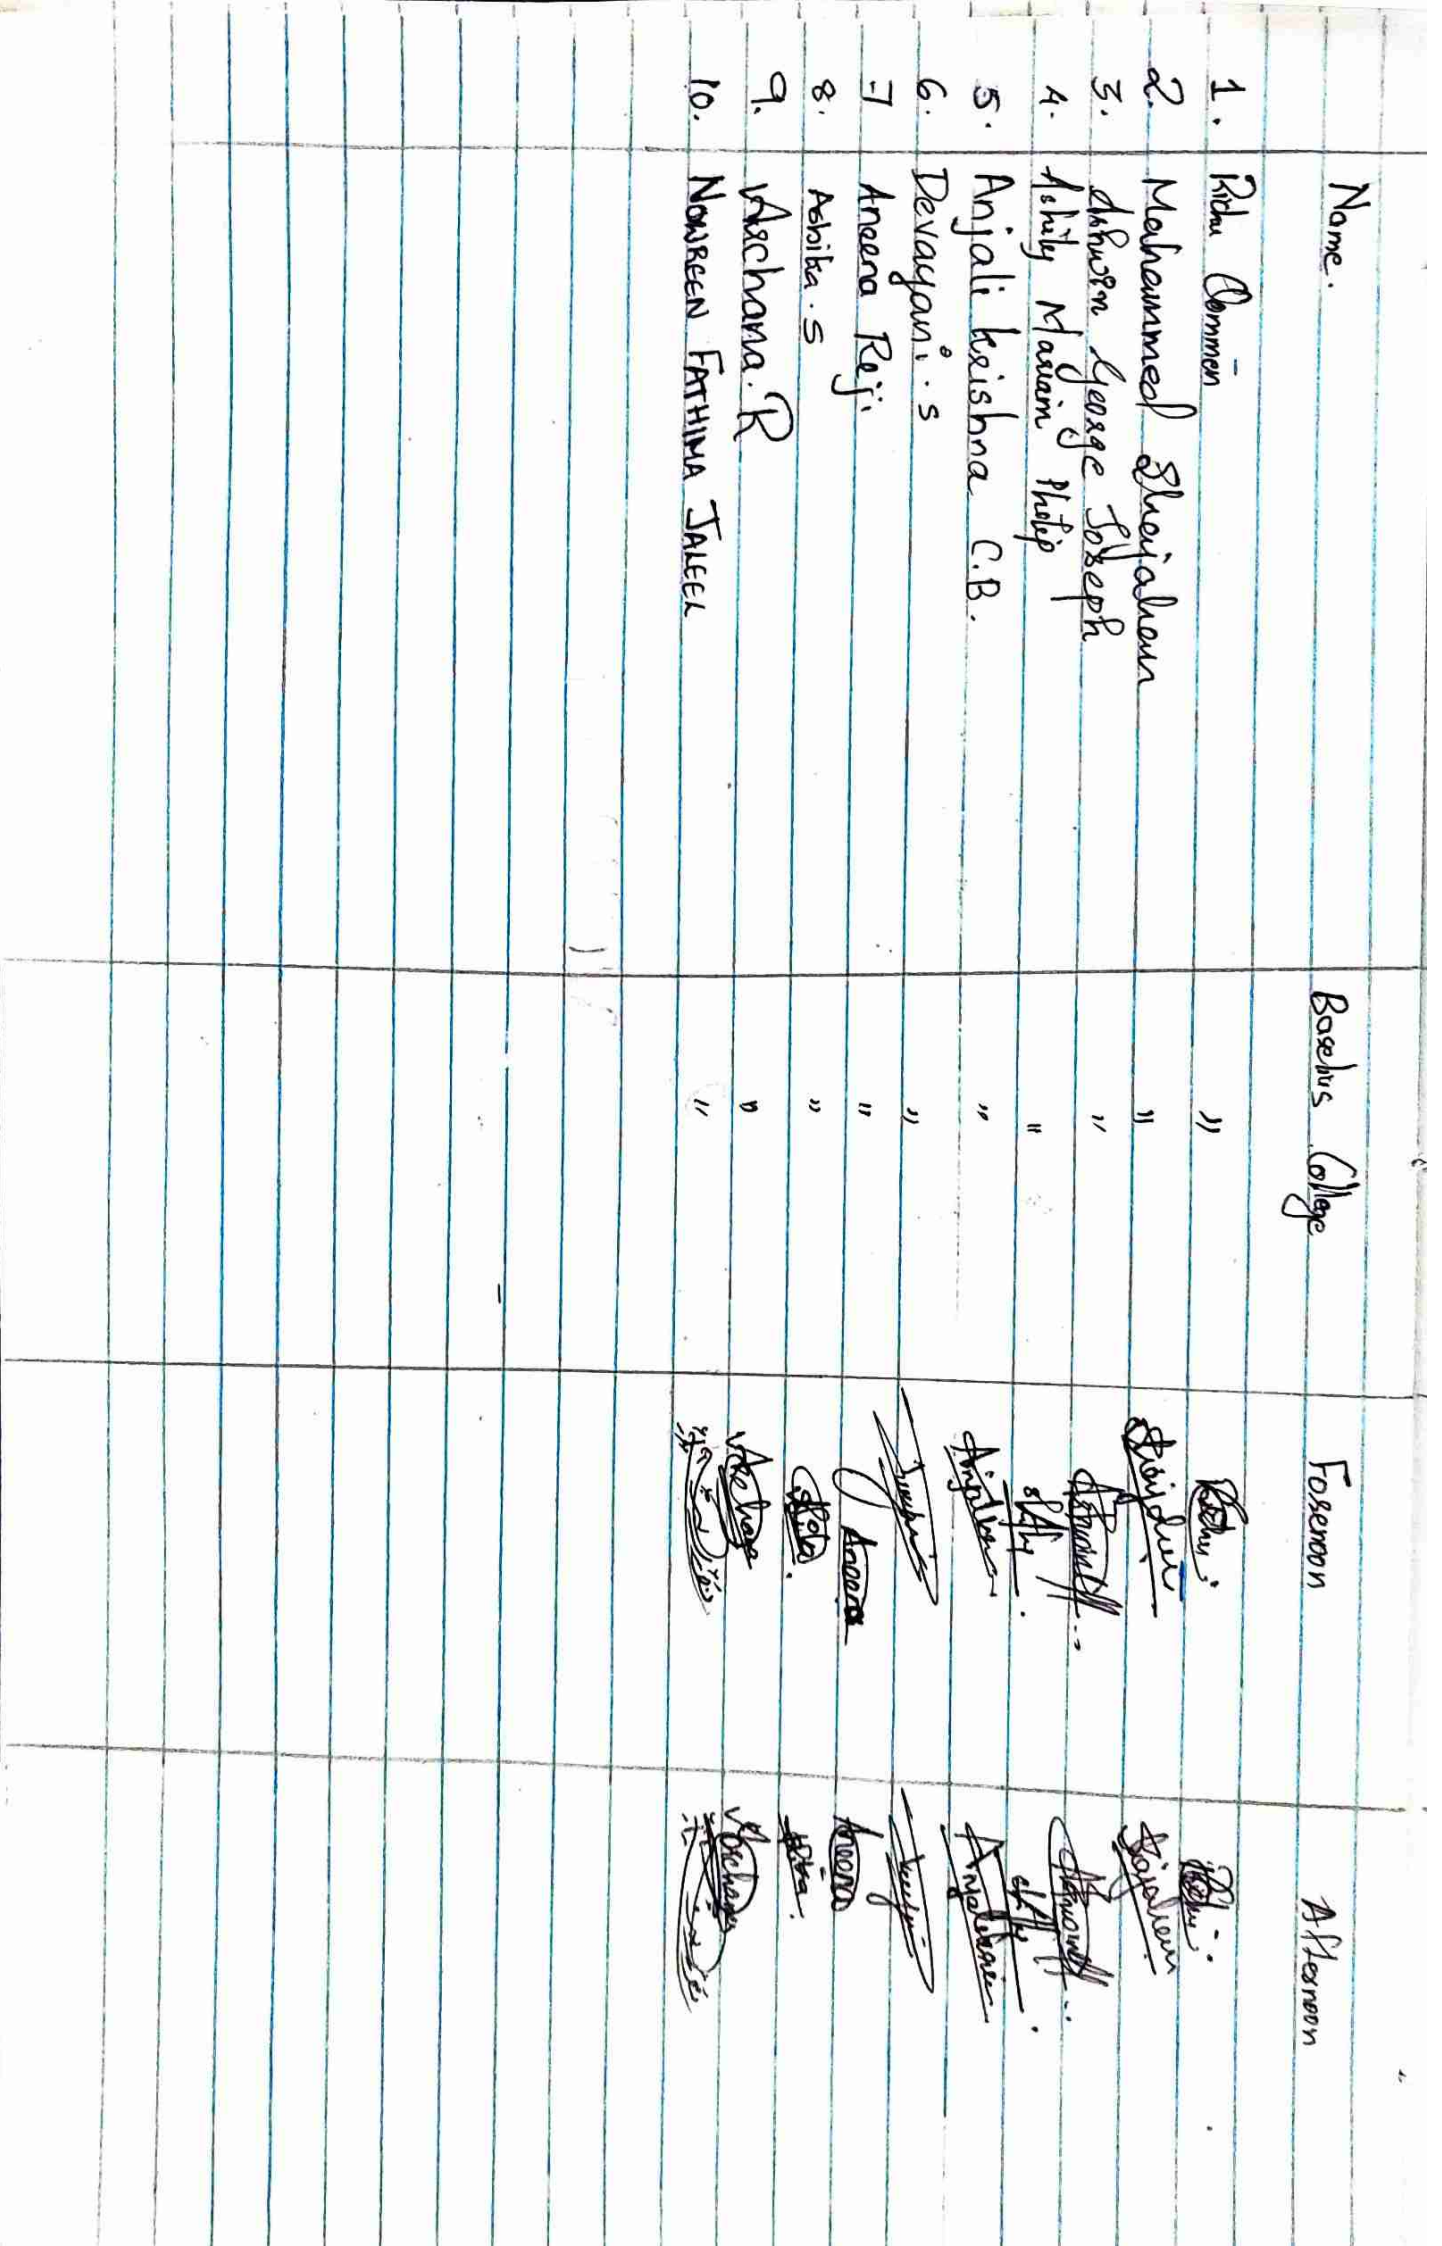 Name. Baselius College Forenoon Afternoon
1. Richu Oommen " Richu Richu
2. Mohammed Shajahan " Shajahan Shajahan
3. Ashwin George Joseph " Ashwin Ashwin
4. Ashily Mariam Philip "
5. Anjali Krishna C.B. " Anjali
6. Devayani.S "
7 Aneena Reji " Aneena Aneena
8. Ashika.S "
9. Archana.R " Archana Archana
10. NOWREEN FATHIMA JALEEL "